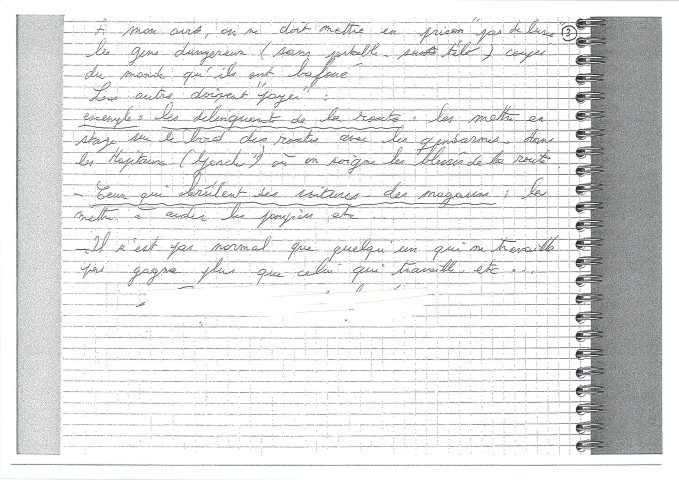 À mon avis, on ne doit mettre en prison "pas de luxe" ②
les gens dangereux (sans portable - sans télé) coupés
du monde qu'ils ont bafoué
Les autres doivent "payer" :
exemple : les délinquants de la route : les mettre en
stage sur le bord des routes avec les gendarmes - dans
les Hôpitaux ( ?) où on soigne les blessés de la route.
- Ceux qui brûlent les voitures - des magasins : les
mettre à aider les pompiers etc
- Il n'est pas normal que quelqu'un qui ne travaille
pas gagne plus que celui qui travaille etc...